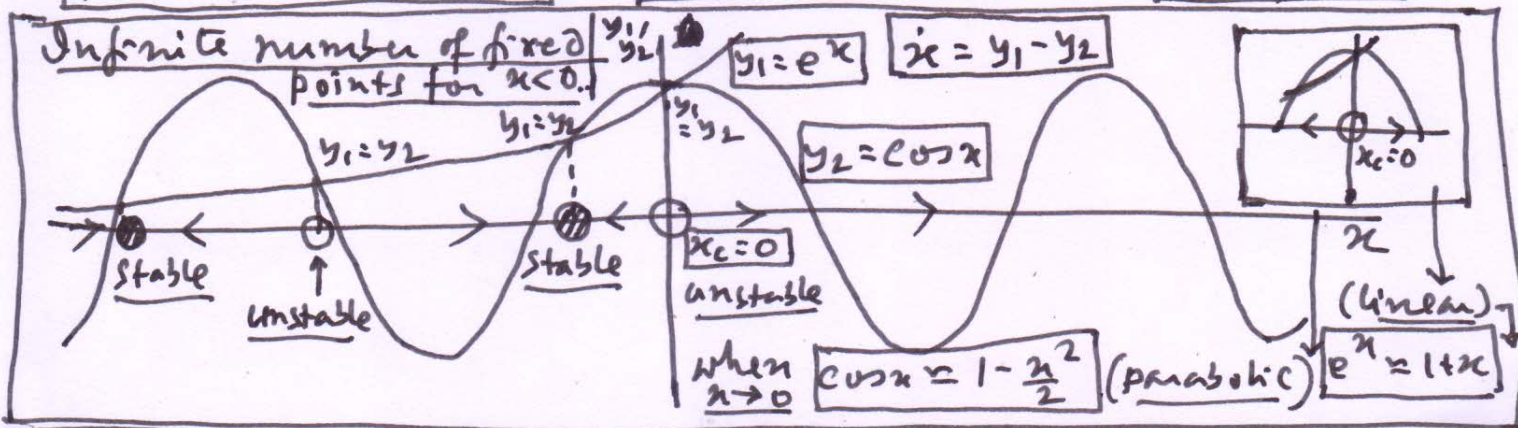 Infinite number of fixed
points for x<0.
y₁, y₂
y₁ = eˣ
ẋ = y₁ - y₂
y₁ = y₂
y₁ = y₂
y₁ = y₂
y₂ = cos x
x_c = 0
x
stable
unstable
stable
x_c = 0
unstable
(linear)
when
x → 0
cos x ≃ 1 - x²/2
(parabolic)
eˣ ≃ 1+x